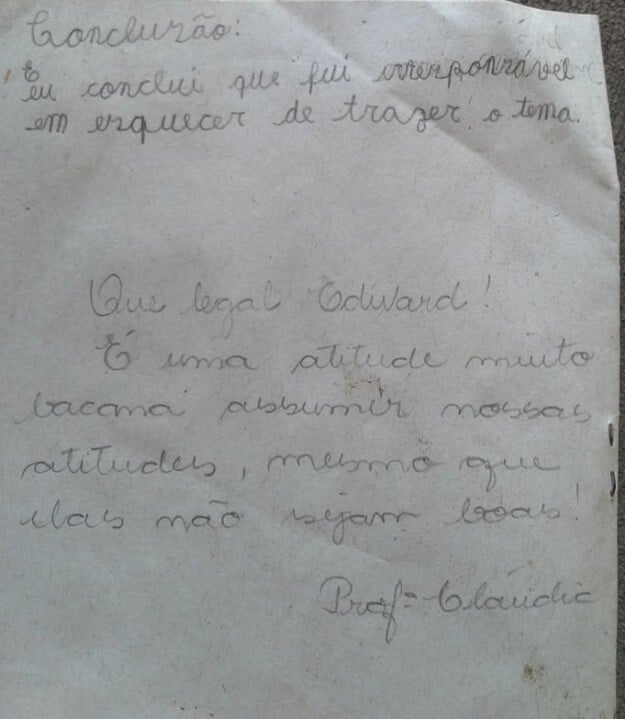 Conclusão:
E
eu conclui que fui irresponsável
em esquecer de trazer o tema.
Que legal Edward!
É uma atitude muito
bacana assumir nossas
atitudes, mesmo que
elas não sejam boas!
Profª Cláudia